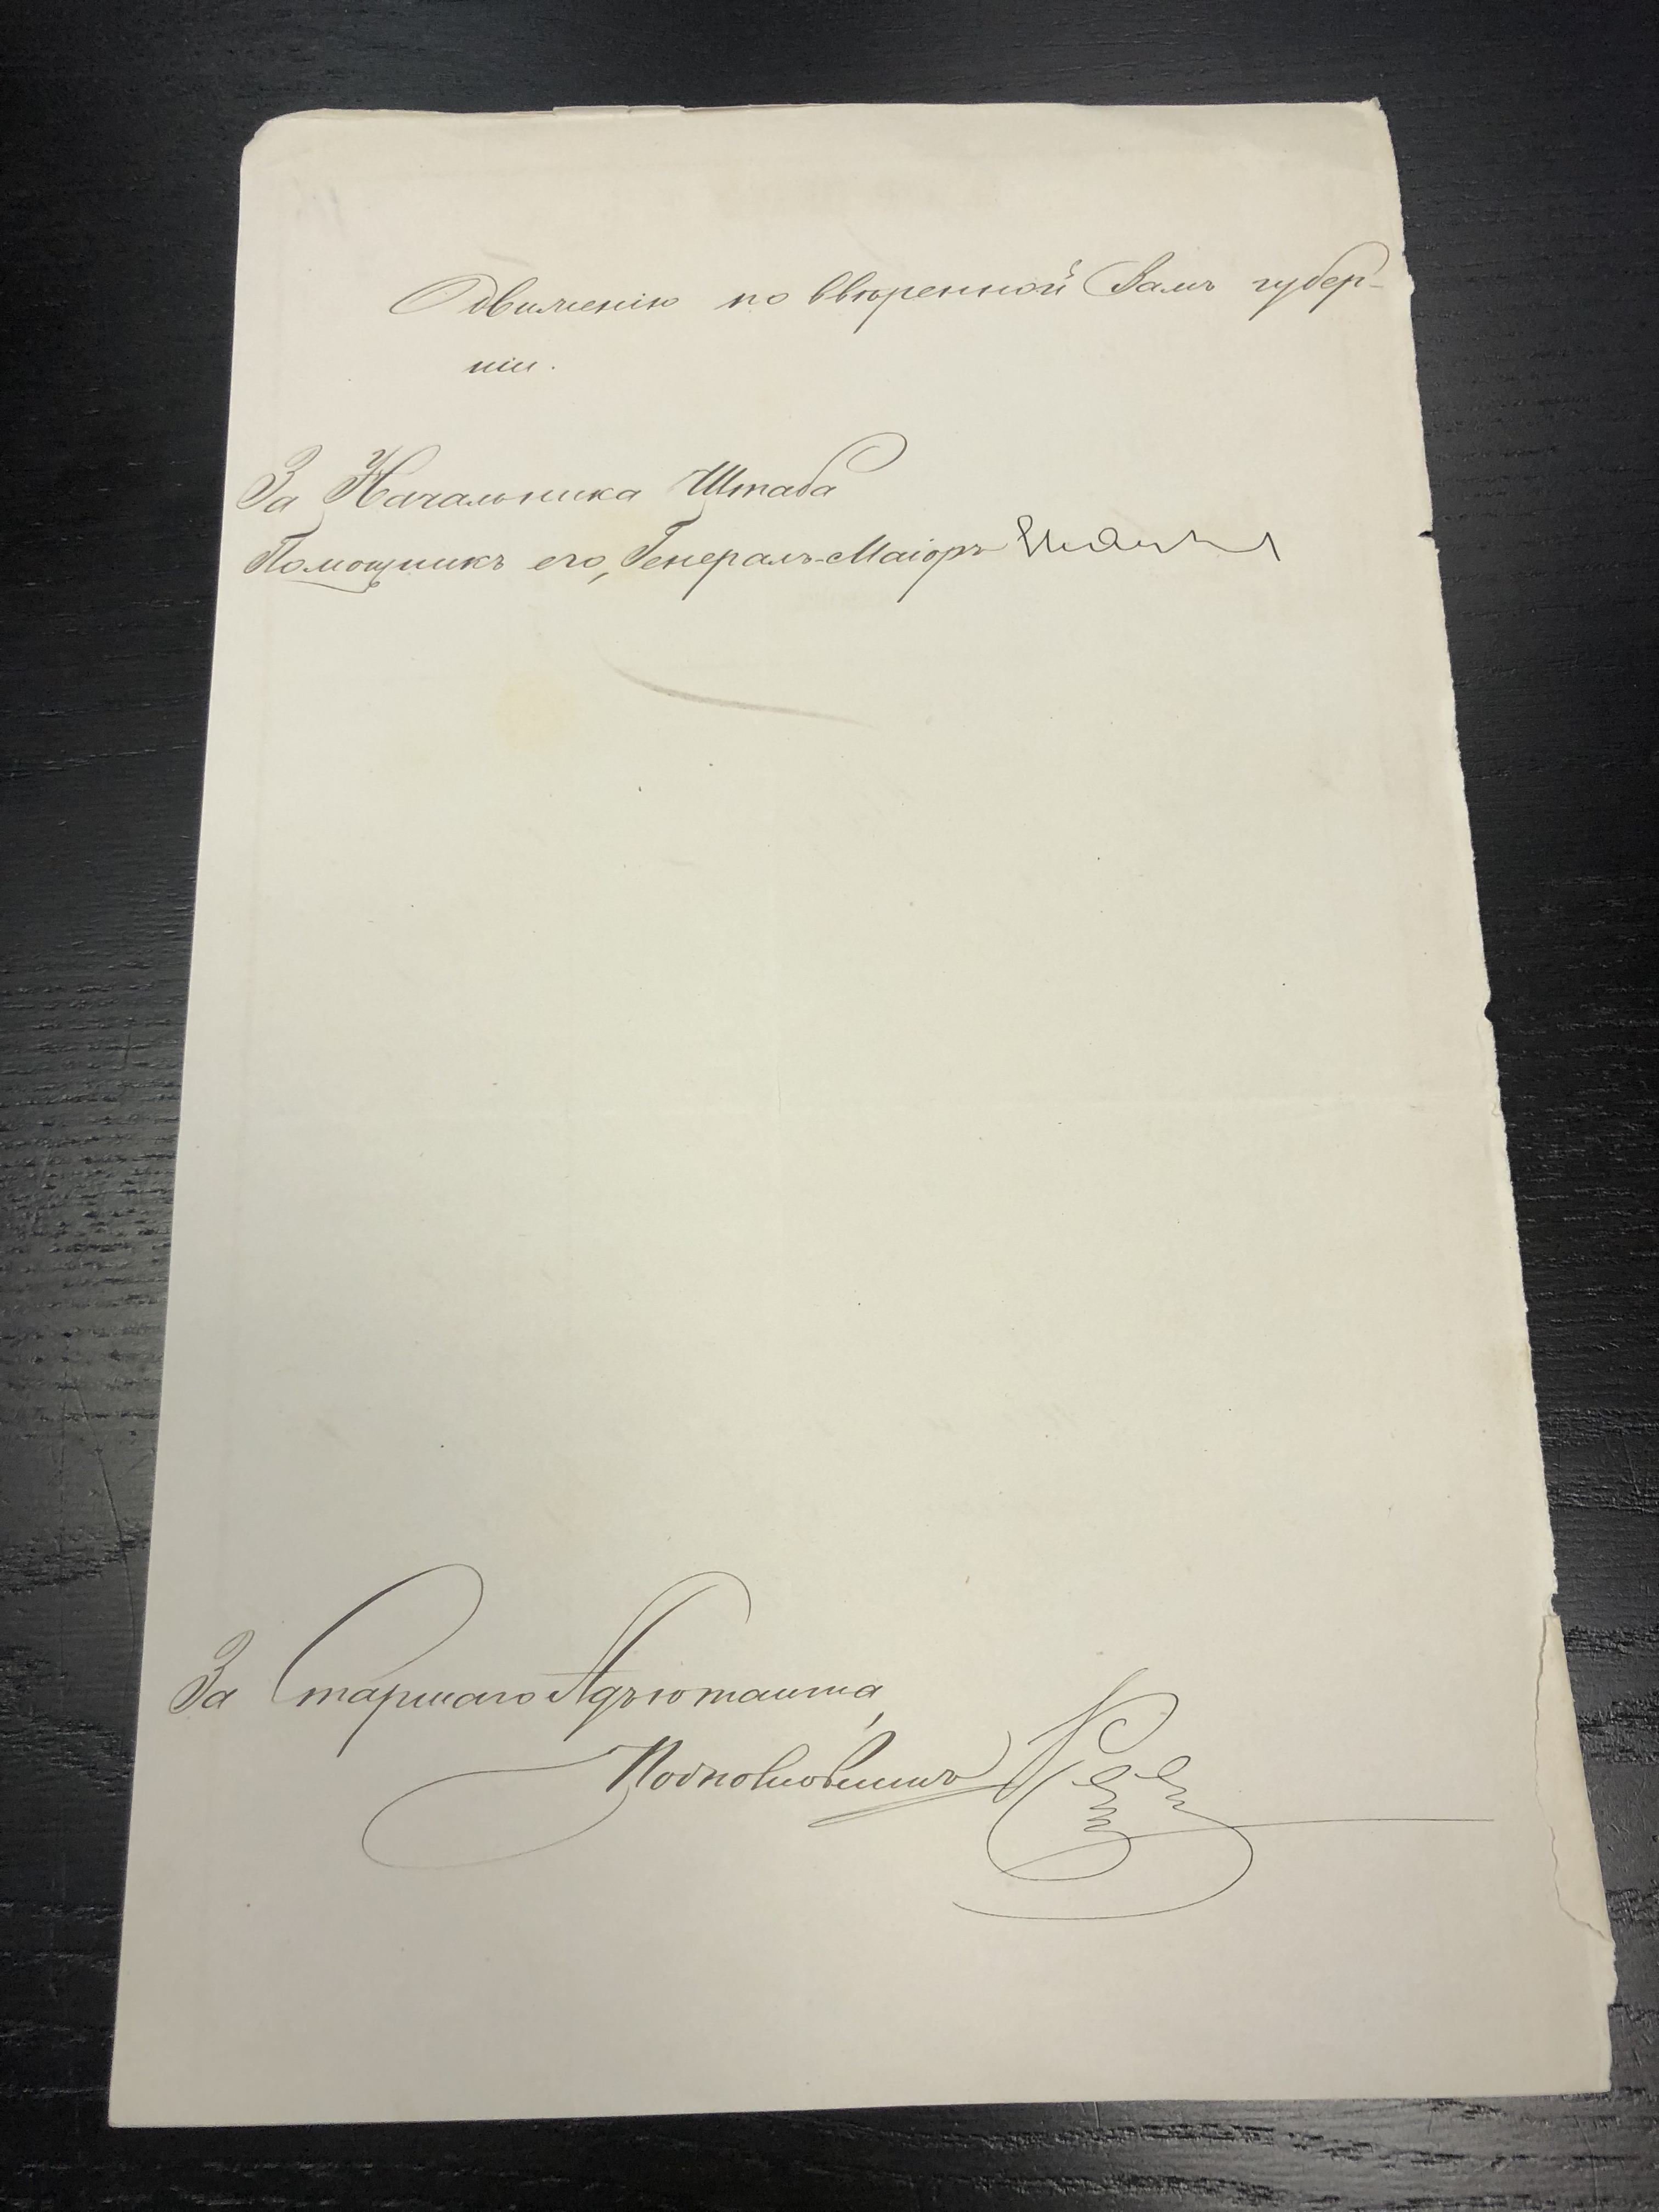 О движенію по ввѣренной Вамъ губер-
ніи.
За Начальника Штаба
Помощникъ его, Генералъ-Маіоръ
За Старшаго Адъютанта,
Подполковникъ